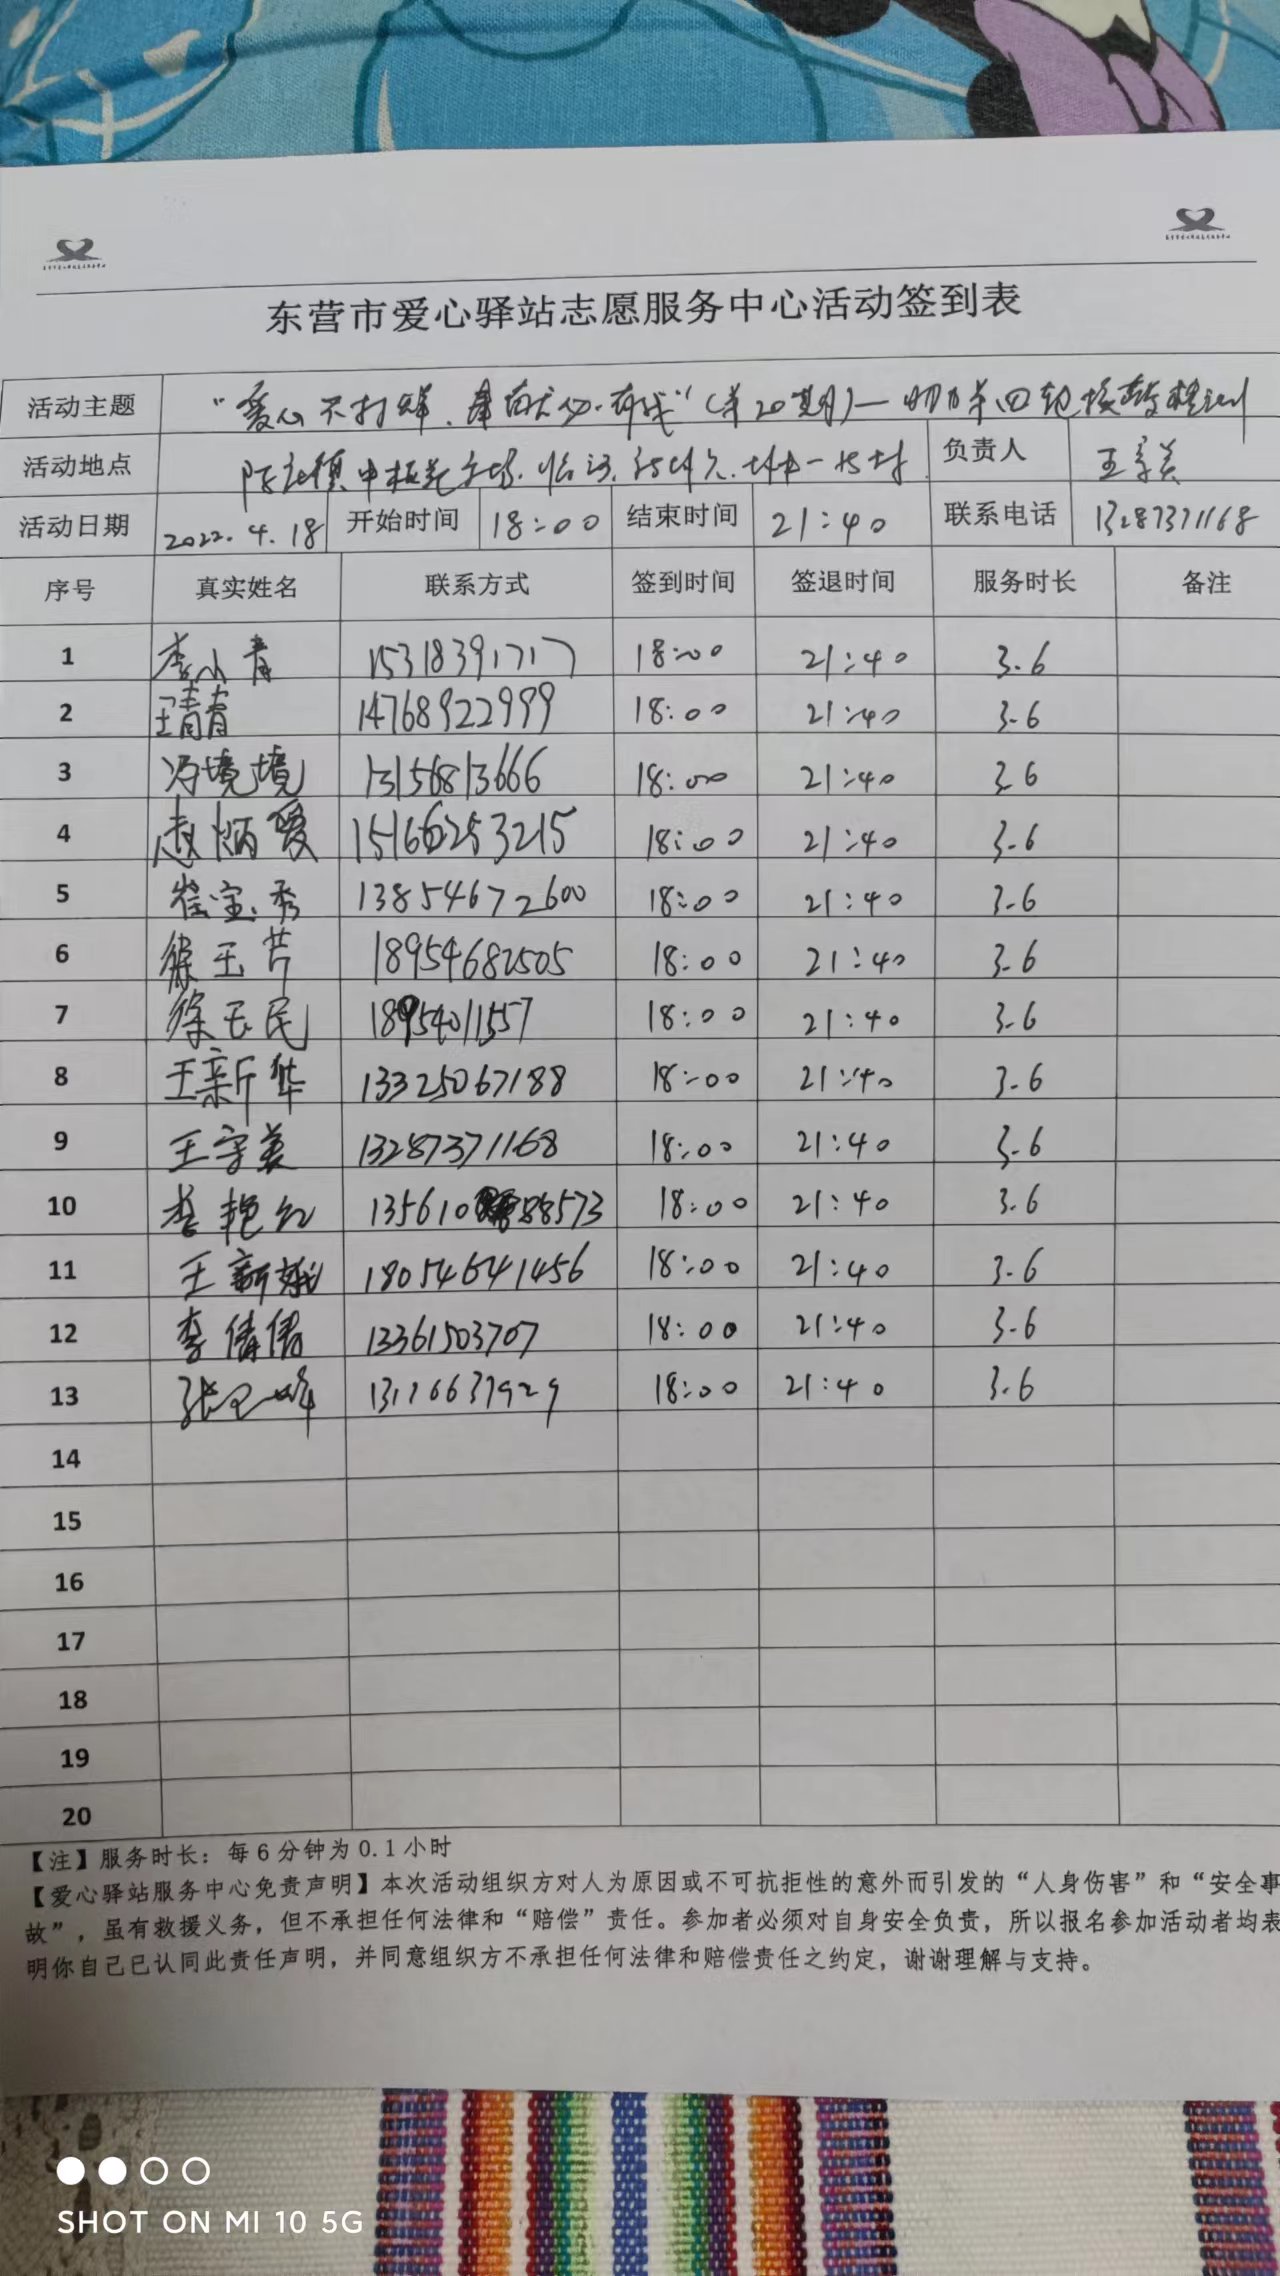 东营市爱心驿站志愿服务中心活动签到表
活动主题 “爱心不打烊、奉献 (第20期)— 第四轮核酸检测
活动地点 陈庄镇中 负责人 王守美
活动日期 2022.4.18 开始时间 18:00 结束时间 21:40 联系电话 13287371168
序号 真实姓名 联系方式 签到时间 签退时间 服务时长 备注
1 李小青 15318391717 18:00 21:40 3.6
2 王青青 14768922999 18:00 21:40 3.6
3 冯境境 13156813666 18:00 21:40 3.6
4 赵炳爱 15166253215 18:00 21:40 3.6
5 崔宝秀 13854672600 18:00 21:40 3.6
6 徐玉芹 18954682505 18:00 21:40 3.6
7 徐玉民 18954011557 18:00 21:40 3.6
8 王新华 13325067188 18:00 21:40 3.6
9 王守美 13287371168 18:00 21:40 3.6
10 李艳红 13561088573 18:00 21:40 3.6
11 王新娥 18054641456 18:00 21:40 3.6
12 李倩倩 13361503707 18:00 21:40 3.6
13 张 峰 18:00 21:40 3.6
14
15
16
17
18
19
20
【注】服务时长：每6分钟为0.1小时
【爱心驿站服务中心免责声明】本次活动组织方对人为原因或不可抗拒性的意外而引发的“人身伤害”和“安全事
故”，虽有救援义务，但不承担任何法律和“赔偿”责任。参加者必须对自身安全负责，所以报名参加活动者均表
明你自己已认同此责任声明，并同意组织方不承担任何法律和赔偿责任之约定，谢谢理解与支持。
SHOT ON MI 10 5G